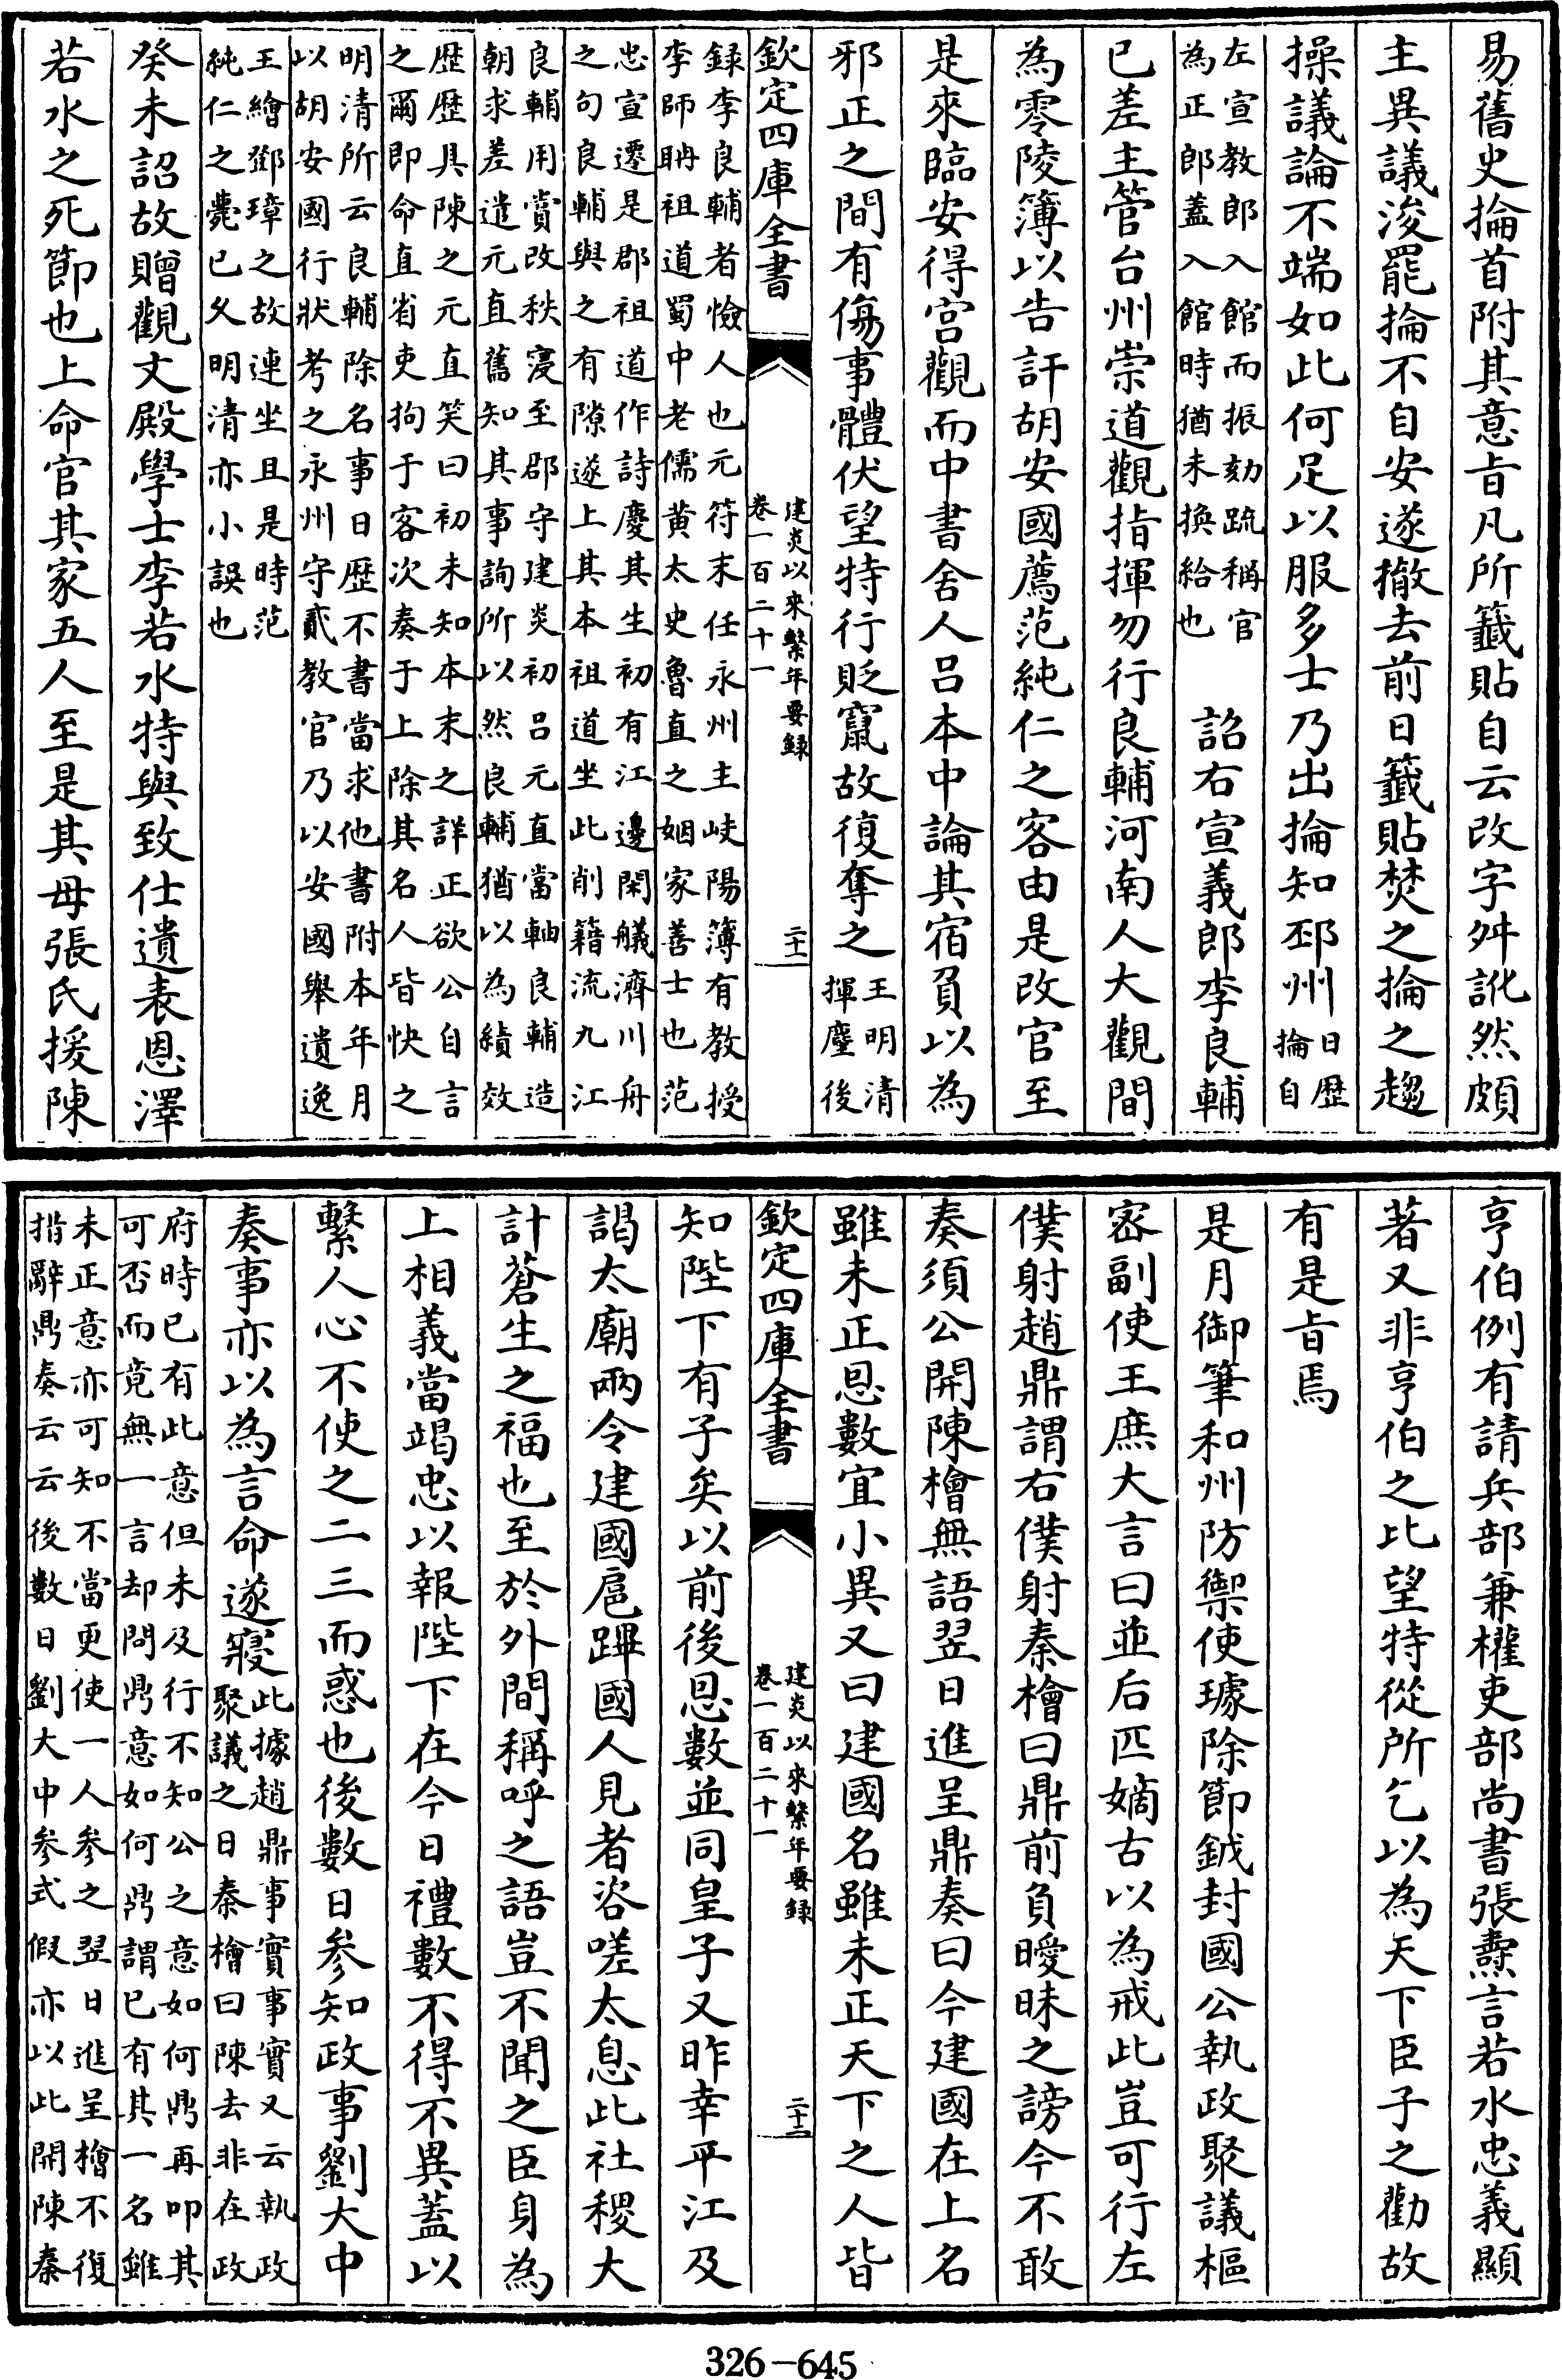 易舊史掄首附其意㫖凡所籖貼自云改字舛訛然頗
主異議浚罷掄不自安遂撤去前日籖貼焚之掄之趨
操議論不端如此何足以服多士乃出掄知邳州日歴掄自
左宣教郎入館而振劾疏稱官為正郎蓋入館時猶未換給也　詔右宣義郎李良輔
已差主管台州崇道觀指揮勿行良輔河南人大觀間
為零陵簿以告訐胡安國薦范純仁之客由是改官至
是來臨安得宫觀而中書舍人吕本中論其宿負以為
邪正之間有傷事體伏望特行貶竄故復奪之王明清揮麈後
欽定四庫全書　建炎以來繫年要録卷一百二十一　二十一
録李良輔者憸人也元符末任永州主岐陽簿有教授
李師聃祖道蜀中老儒黄太史魯直之姻家善士也范
忠宣遷是郡祖道作詩慶其生初有江邊閑艤濟川舟
之句良輔與之有隙遂上其本祖道坐此削籍流九江
良輔用賞改秩寖至郡守建炎初吕元直當軸良輔造
朝求差遣元直舊知其事詢所以然良輔猶以為績效
歴歴具陳之元直笑曰初未知本末之詳正欲公自言
之爾即命直省吏拘于客次奏于上除其名人皆快之
明清所云良輔除名事日歴不書當求他書附本年月
以胡安國行狀考之永州守貳教官乃以安國舉遺逸
王繪鄧璋之故連坐且是時范
純仁之薨已久明清亦小誤也
癸未詔故贈觀文殿學士李若水特與致仕遺表恩澤
若水之死節也上命官其家五人至是其母張氏援陳
亨伯例有請兵部兼權吏部尚書張燾言若水忠義顯
著又非亨伯之比望特從所乞以為天下臣子之勸故
有是㫖焉
是月御筆和州防禦使璩除節鉞封國公執政聚議樞
密副使王庶大言曰並后匹嫡古以為戒此豈可行左
僕射趙鼎謂右僕射秦檜曰鼎前負曖昧之謗今不敢
奏須公開陳檜無語翌日進呈鼎奏曰今建國在上名
雖未正恩數宜小異又曰建國名雖未正天下之人皆
欽定四庫全書　建炎以來繫年要録卷一百二十一　二十二
知陛下有子矣以前後恩數並同皇子又昨幸平江及
謁太廟兩令建國扈蹕國人見者咨嗟太息此社稷大
計蒼生之福也至於外間稱呼之語豈不聞之臣身為
上相義當竭忠以報陛下在今日禮數不得不異蓋以
繫人心不使之二三而惑也後數日參知政事劉大中
奏事亦以為言命遂寢此據趙鼎事實事實又云執政聚議之日秦檜曰陳去非在政
府時已有此意但未及行不知公之意如何鼎再叩其
可否而竟無一言却問鼎意如何鼎謂已有其一名雖
未正意亦可知不當更使一人參之翌日進呈檜不復
措辭鼎奏云云後數日劉大中參式假亦以此開陳秦
326-645